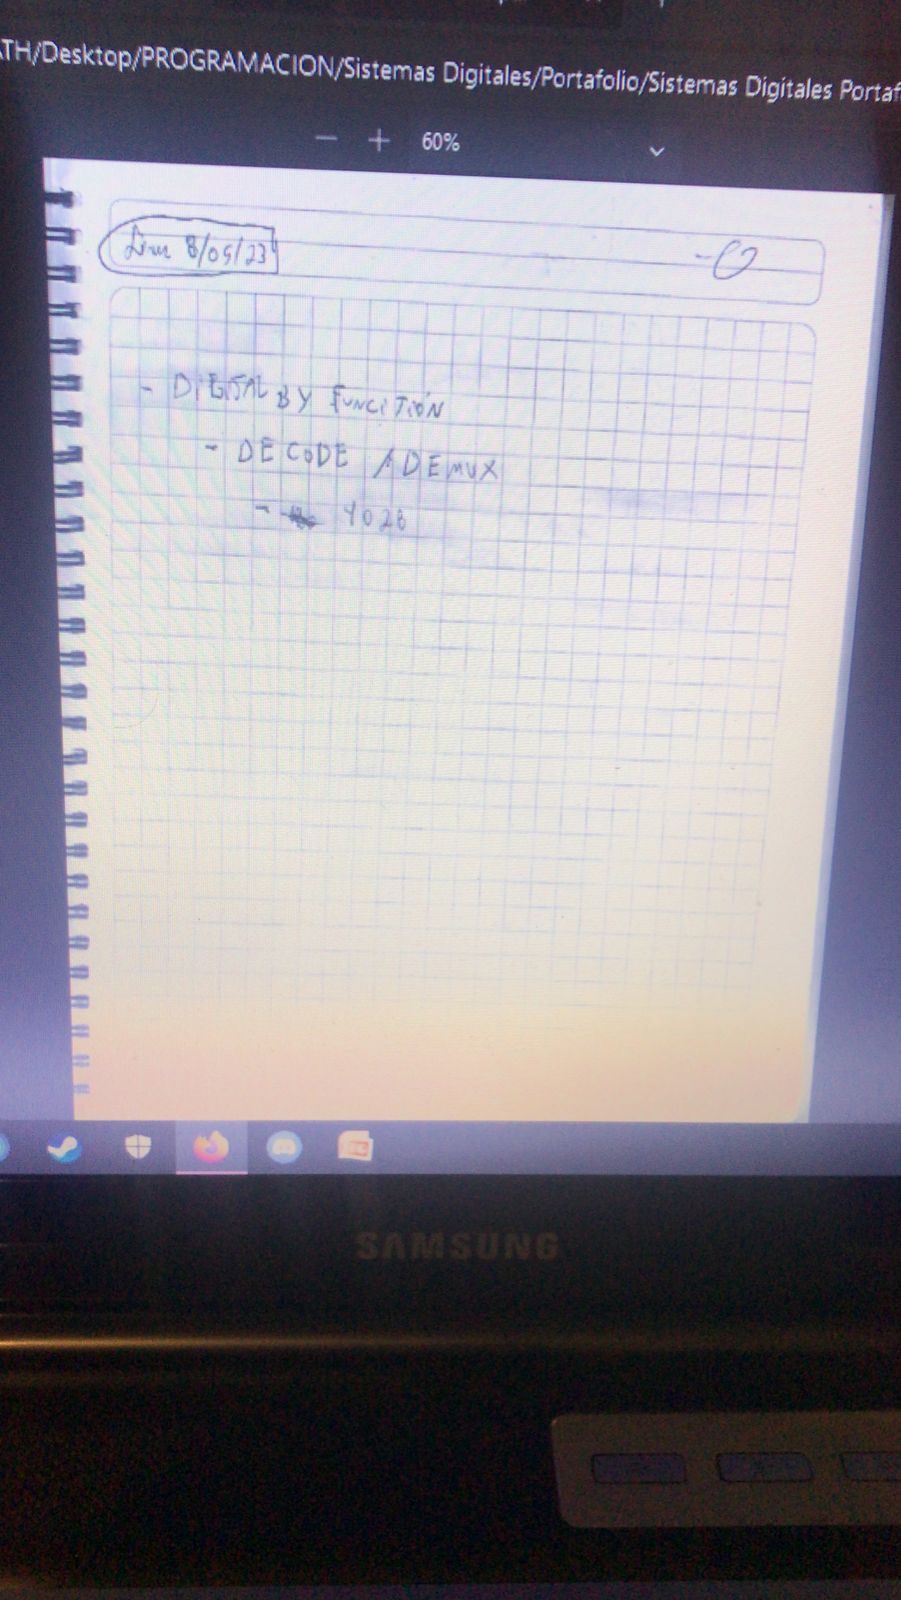 ATH/Desktop/PROGRAMACION/Sistemas Digitales/Portafolio/Sistemas Digitales Portaf
60%
Lun 8/05/23
- DIGITAL BY FUNCITIÓN
- DECODE / DEMUX
- 4028
SAMSUNG